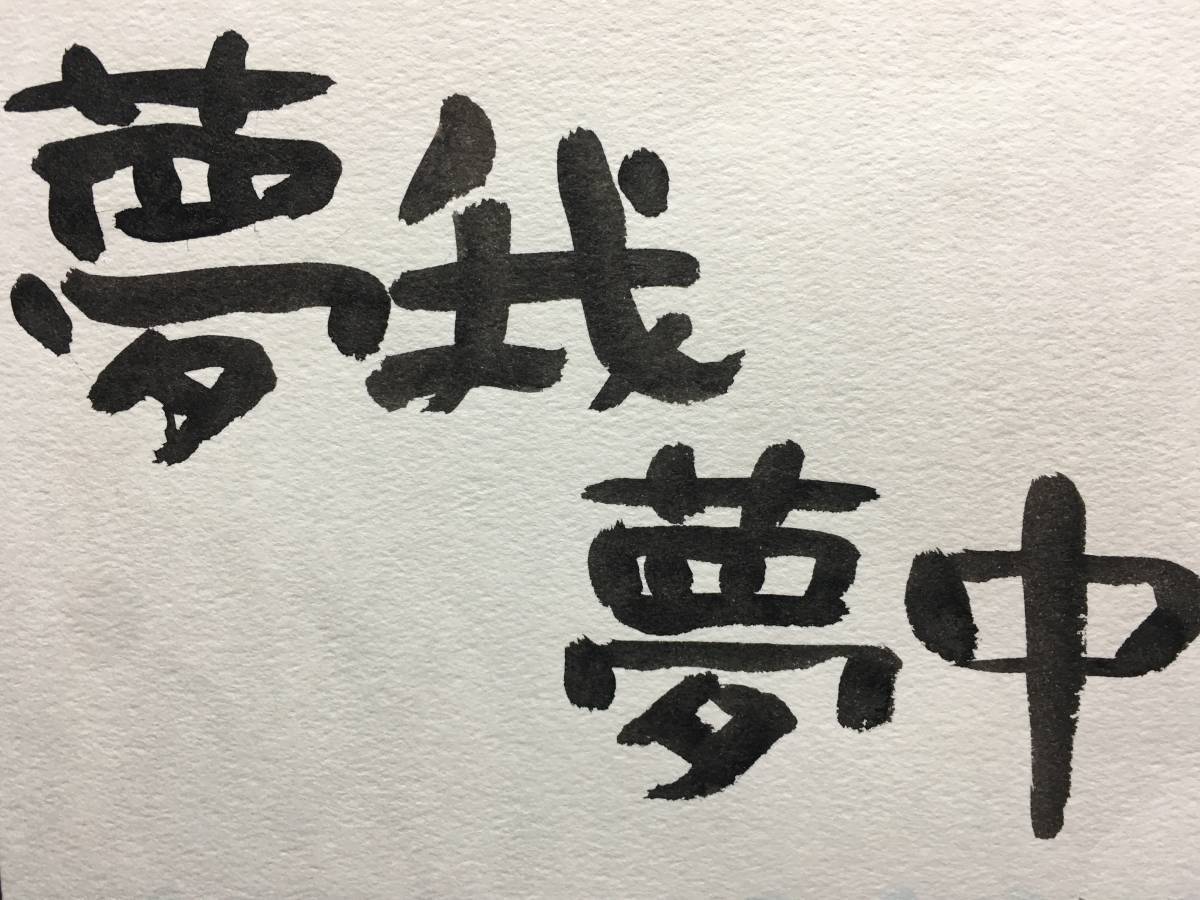 夢我
夢中